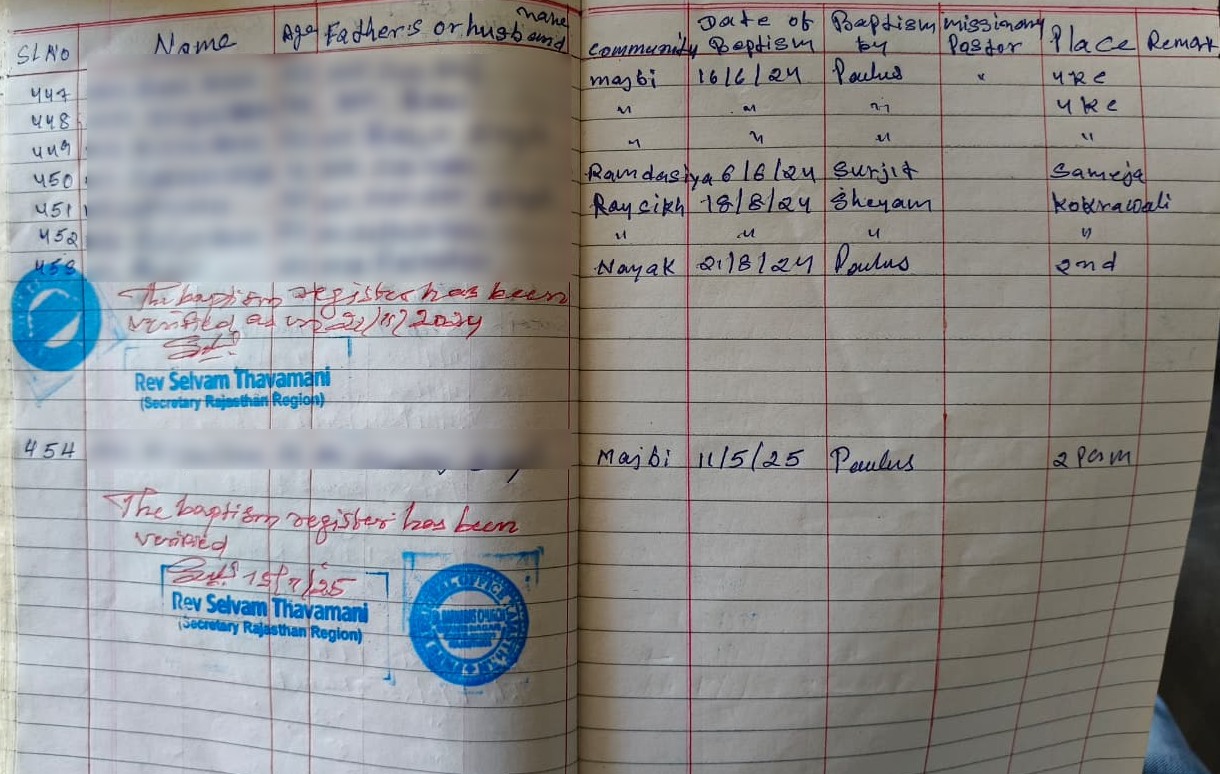 SL No Name Age Father's or husband name community Date of Baptism Baptism by missionary Pastor Place Remark
447 majbi 16/6/24 Paulus " 4 KC
448 " " " 4 KC
449 " " " "
450 Ramdasiya 6/6/24 Surjit Sameja
451 Raysikh 18/8/24 Sheyam Kokrawali
452 " " " "
453 Nayak 21/8/24 Paulus 2nd
The baptism register has been
verified as on 22/11/2024
Rev Selvam Thavamani
(Secretary Rajasthan Region)
454 Majbi 11/5/25 Paulus 2 Psm
The baptism register has been
verified
15/7/25
Rev Selvam Thavamani
(Secretary Rajasthan Region)